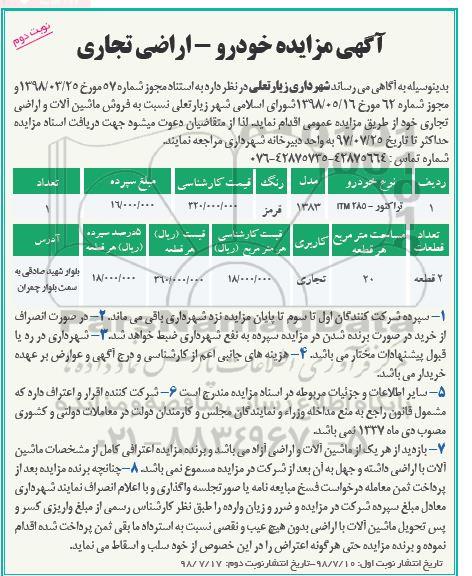 نوبت دوم
آگهی مزایده خودرو - اراضی تجاری
بدینوسیله به آگاهی می رساند شهرداری زیارتعلی در نظر دارد به استناد مجوز شماره ۵۷ مورخ ۱۳۹۸/۰۳/۲۵ و
مجوز شماره ۶۲ مورخ ۱۳۹۸/۰۵/۱۶ شورای اسلامی شهر زیارتعلی نسبت به فروش ماشین آلات و اراضی
تجاری خود از طریق مزایده عمومی اقدام نماید. لذا از متقاضیان دعوت میشود جهت دریافت اسناد مزایده
حداکثر تا تاریخ ۹۷/۰۷/۲۵ به واحد دبیرخانه شهرداری مراجعه نمایند.
شماره تماس : ۴۲۸۷۵۶۶۴-۴۲۸۷۵۷۳۵-۰۷۶
ردیف نوع خودرو مدل رنگ قیمت کارشناسی مبلغ سپرده تعداد
۱ تراکتور - ITM ۲۸۵ ۱۳۸۳ قرمز ۳۲۰/۰۰۰/۰۰۰ ۱۶/۰۰۰/۰۰۰ ۱
تعداد قطعات مساحت متر مربع هر قطعه کاربری قیمت کارشناسی هر متر مربع (ریال) قیمت (ریال) هر قطعه ۵درصد سپرده (ریال) هر قطعه آدرس
۲ قطعه ۲۰ تجاری ۱۸/۰۰۰/۰۰۰ ۳۶۰/۰۰۰/۰۰۰ ۱۸/۰۰۰/۰۰۰ بلوار شهید صادقی به سمت بلوار چمران
۱- سپرده شرکت کنندگان اول تا سوم تا پایان مزایده نزد شهرداری باقی می ماند. ۲- در صورت انصراف
از خرید در صورت برنده شدن در مزایده سپرده به نفع شهرداری ضبط خواهد شد. ۳- شهرداری در رد یا
قبول پیشنهادات مختار می باشد. ۴- هزینه های جانبی اعم از کارشناسی و درج آگهی و عوارض بر عهده
خریدار می باشد.
۵- سایر اطلاعات و جزئیات مربوطه در اسناد مزایده مندرج است ۶- شرکت کننده اقرار و اعتراف دارد که
مشمول قانون راجع به منع مداخله وزراء و نمایندگان مجلس و کارمندان دولت در معاملات دولتی و کشوری
مصوب دی ماه ۱۳۳۷ نمی باشد.
۷- بازدید از هر یک از ماشین آلات و اراضی آزاد می باشد و برنده مزایده اعترافی کامل از مشخصات ماشین
آلات با اراضی داشته و جهل به آن بعد از شرکت در مزایده مسموع نمی باشد. ۸- چنانچه برنده مزایده بعد از
پرداخت ثمن معامله درخواست فسخ مبایعه نامه یا صورتجلسه واگذاری و یا اعلام انصراف نمایند شهرداری
معادل مبلغ سپرده شرکت در مزایده و ضرر و زیان وارده را طبق نظر کارشناس رسمی از مبلغ واریزی کسر و
پس تحویل ماشین آلات با اراضی بدون هیچ عیب و نقصی نسبت به استرداد ما بقی ثمن پرداخت شده اقدام
نموده و برنده مزایده حتی هرگونه اعتراض را در این خصوص از خود سلب و اسقاط می نماید.
تاریخ انتشار نوبت اول: ۹۸/۷/۱۰-تاریخ انتشار نوبت دوم: ۹۸/۷/۱۷